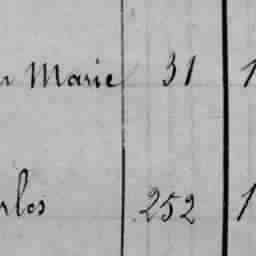 Marie 31 1
rlos 252 1